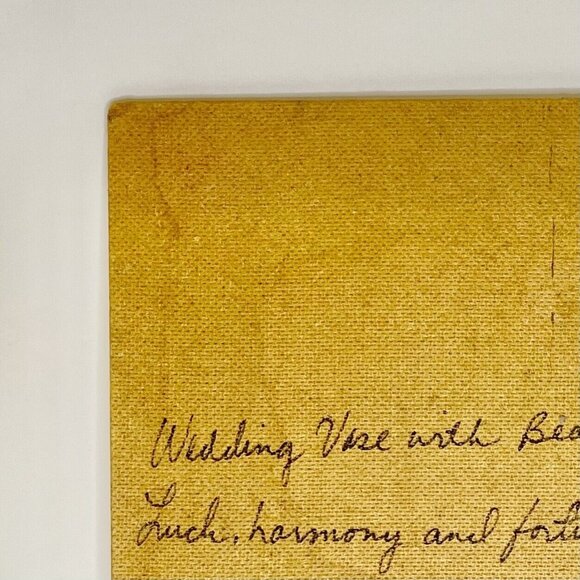 Wedding Vase with Bea
Luck, harmony and fort